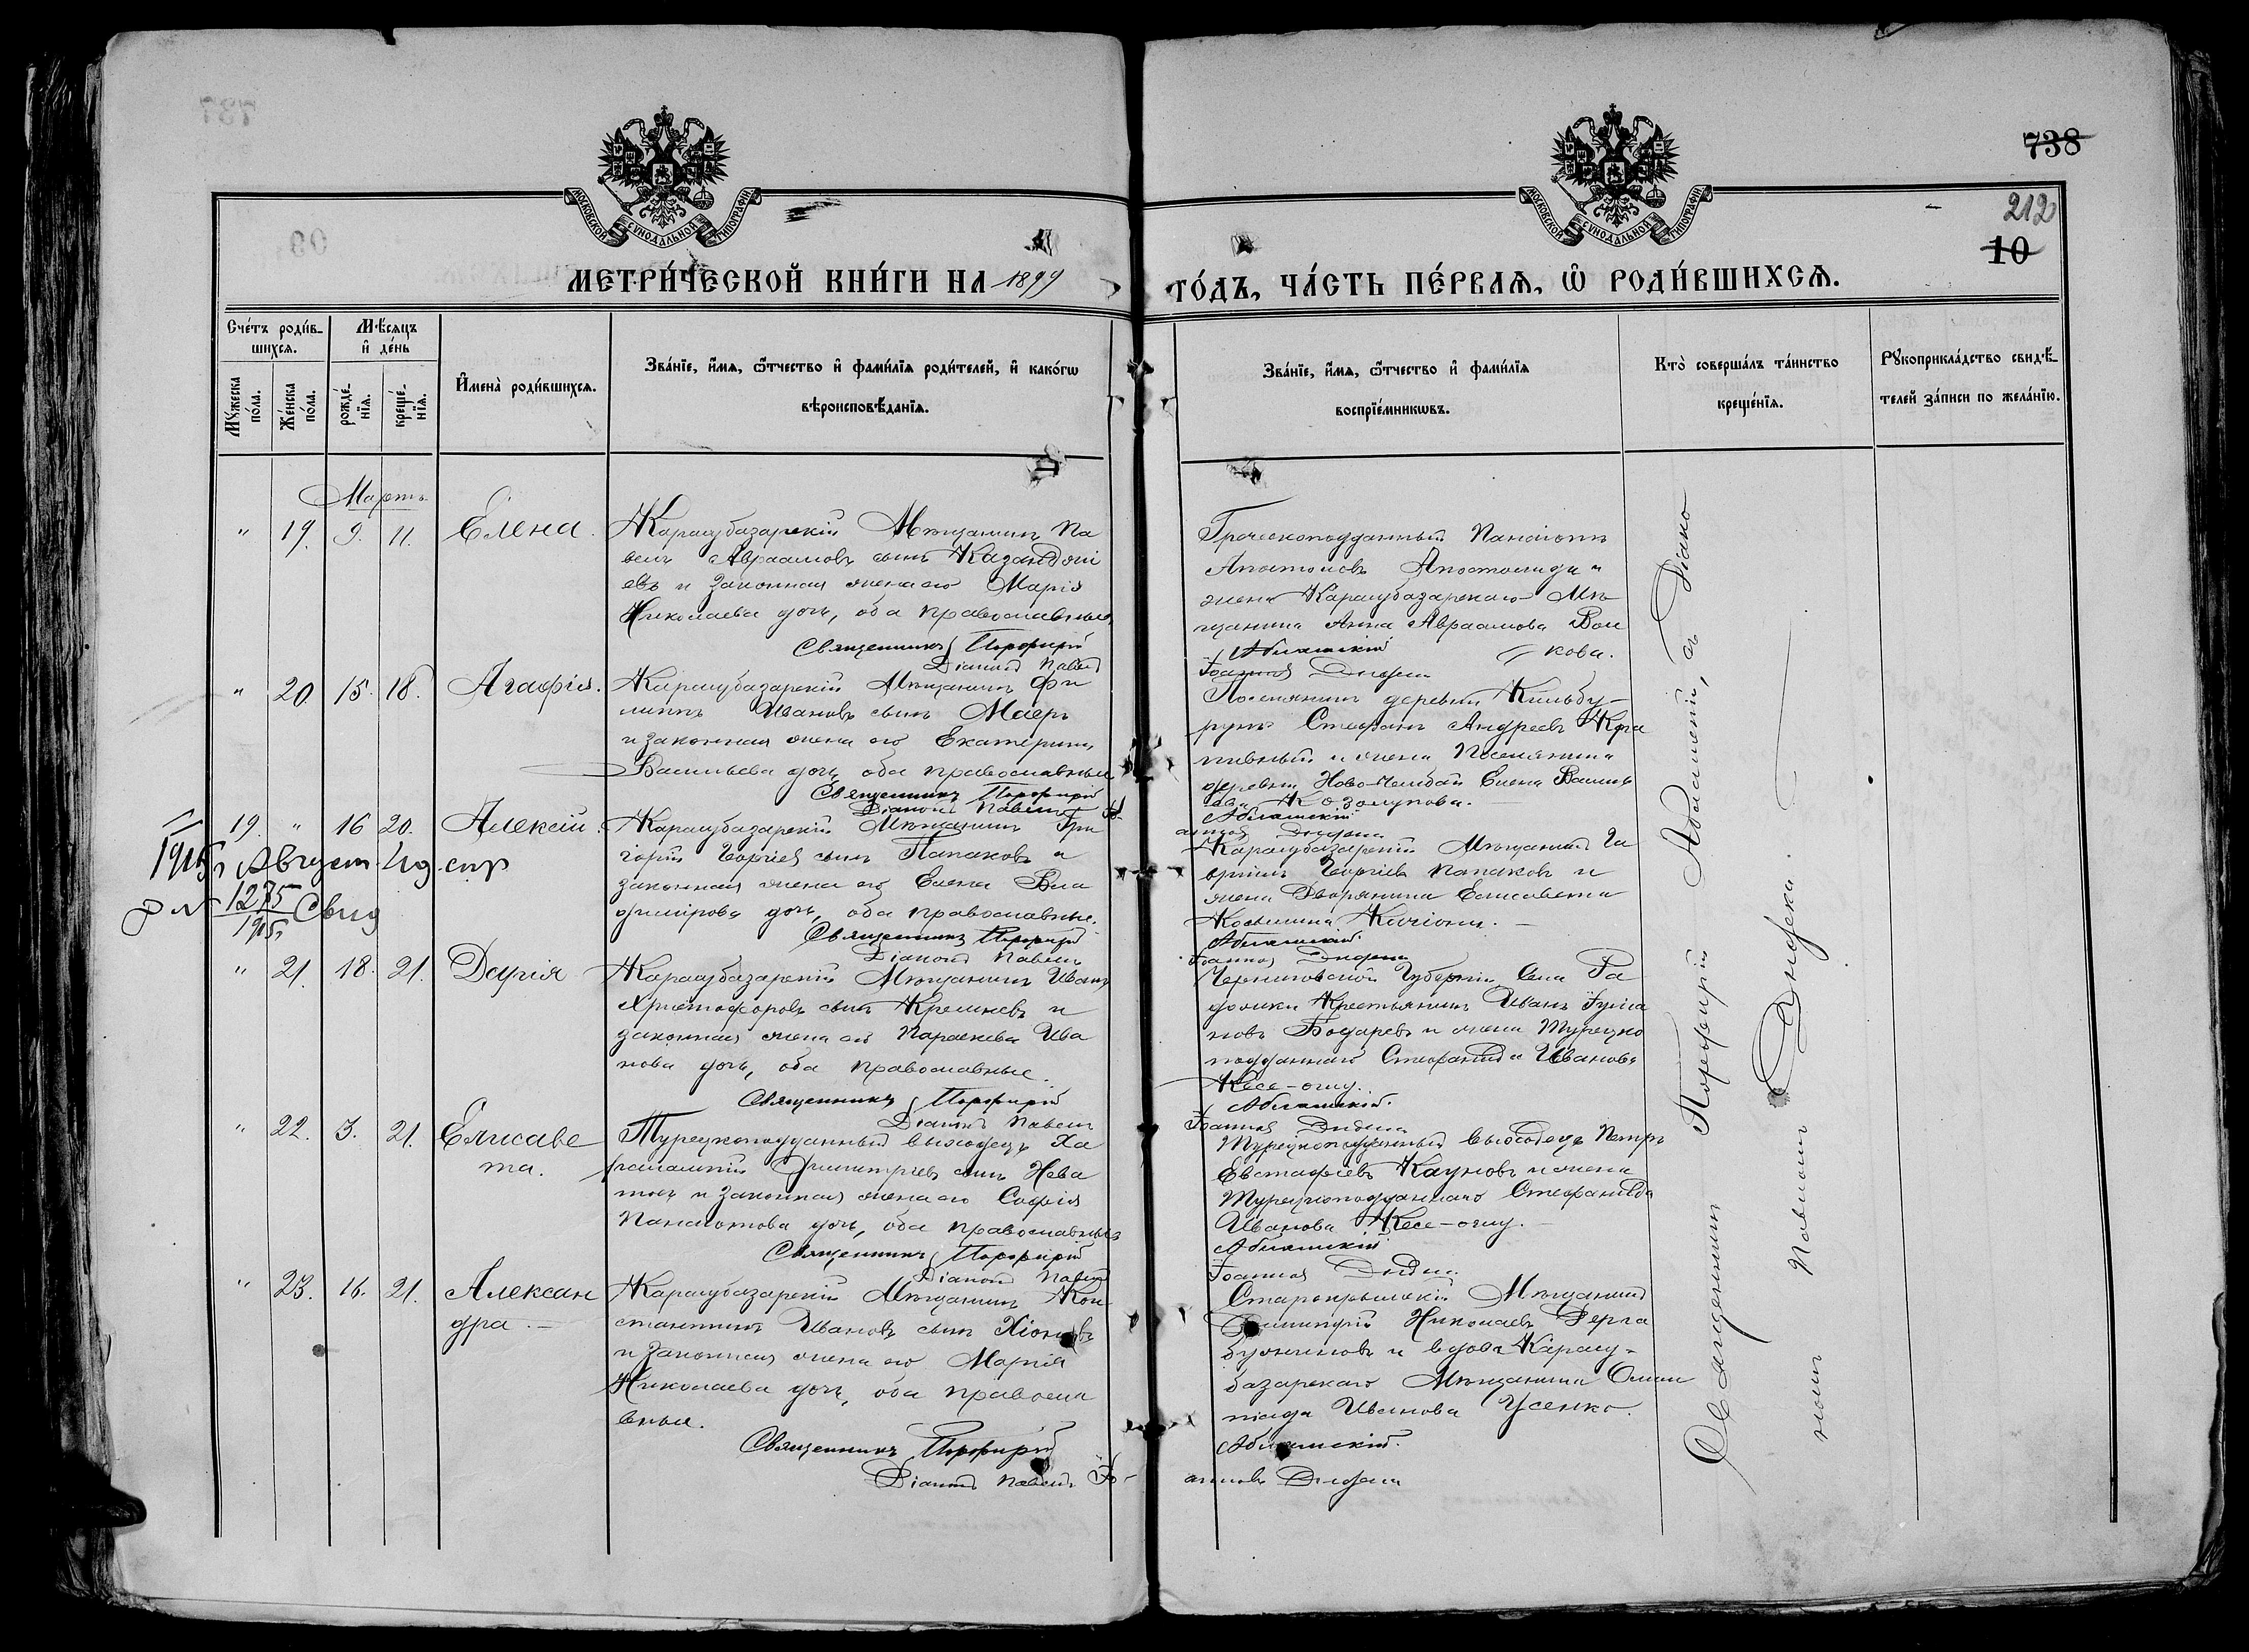 738
212
10
МОСКОВСКОЙ СѴНОДАЛЬНОЙ ТИПОГРАФІИ
МОСКОВСКОЙ СѴНОДАЛЬНОЙ ТИПОГРАФІИ
МЕТРИ́ЧЕСКОЙ КНИ́ГИ НА 1899
ГО́ДЪ, ЧА́СТЬ ПЕ́РВАѦ, Ѡ҆ РОДИ́ВШИХСѦ.
Сче́тъ роди́в-
шихсѧ.
Мѣ́сѧцъ
и҆ де́нь
Мꙋ́жеска по́ла.
Же́нска по́ла.
рожде́-нїѧ.
креще́-нїѧ.
И҆мена̀ роди́вшихсѧ.
Зва́нїе, и҆́мѧ, ѻ҆́тчество и҆ фами́лїѧ роди́телей, и҆ како́гѡ
вѣроисповѣ́данїѧ.
Зва́нїе, и҆́мѧ, ѻ҆́тчество и҆ фами́лїѧ
воспрїе́мникѡвъ.
Кто̀ соверша́лъ та́инство
креще́нїѧ.
Рꙋкоприкла́дство свидѣ́-
телей за́писи по жела́нїю.
Мартъ
" 19. 9. 11. Елена.
Карасубазарскій Мѣщанинъ Па
велъ Авраамовъ сынъ Казанджі
евъ и законная жена его Марія
Николаева дочь, оба православные
Священникъ Порфирій
Діаконъ Павелъ
Греческоподданный Панаіотъ
Апостоловъ Апостолиди и
жена Карасубазарскаго Мѣ
щанина Анна Авраамова Вол
кова.
Абламскій
Іоанновъ Дидена
" 20. 15. 18. Агафія.
Карасубазарскій Мѣщанинъ Фи
липпъ Ивановъ сынъ Маеръ
и законная жена его Екатерина
Васильева дочь, оба православные
Священникъ Порфирій
Діаконъ Павелъ Іо-
Поселянинъ деревни Кильбу-
рунъ Стефанъ Андреевъ
и жена Поселянина
деревни Елена Василь
ева
Абламскій
анновъ Дидена
19. " 16 20. Алексій.
1915 г Август
№ 1275
1915 г
Свид
Карасубазарскій Мѣщанинъ Гри
горій Георгіевъ сынъ Папаковъ и
законная жена его Елена Вла
димірова дочь, оба православные.
Священникъ Порфирій
Діаконъ Павелъ
Карасубазарскій Мѣщанинъ Га
вріилъ Георгіевъ Папаковъ и
жена Дворянина Елисавета
Косьмина Качіони.
Абламскій.
Іоанновъ Дидена
" 21. 18. 21. Дарія
Карасубазарскій Мѣщанинъ Иванъ
Христофоровъ сынъ и
законная жена его Параскева Ива
нова дочь, оба православные.
Священникъ Порфирій
Діаконъ Павелъ
Черниговской Губерніи Села
Крестьянинъ Иванъ
Бодаревъ и жена Турецко
подданнаго Стефанида Иванова
Кесе-оглу.
Абламскій.
Іоанновъ Дидена
" 22. 3. 21. Елисаве
та.
Турецкоподданный выходецъ Ха
ралампій Димитріевъ сынъ
и законная жена его Софія
Панаіотова дочь, оба православные
Священникъ Порфирій
Діаконъ Павелъ
Турецкоподданный выходецъ Петръ
Евстафіевъ Кауновъ и жена
Турецкоподданнаго Стефанида
Иванова Кесе-оглу.
Абламскій
Іоанновъ Дидена
" 23. 16. 21. Алексан
дра.
Карасубазарскій Мѣщанинъ Кон
стантинъ Ивановъ сынъ
и законная жена его Марія
Николаева дочь, оба правосла
вные.
Священникъ Порфирій
Діаконъ Павелъ Іо-
Старокрымскій Мѣщанинъ
Димитрій Николаевъ
и вдова Карасу-
базарскаго Мѣщанина Олим
піада Иванова Усенко.
Абламскій.
анновъ Дидена
Священникъ Порфирій Абламскій, съ Діако
номъ Павломъ Дидена.